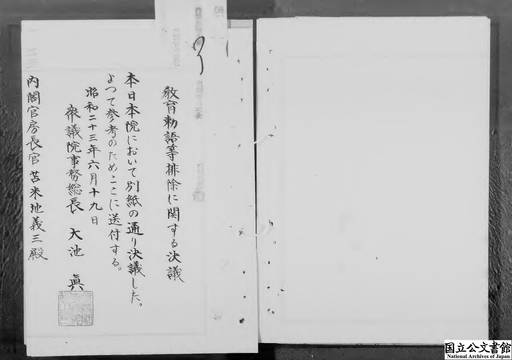 教育勅語等排除に関する決議
本日本院において別紙の通り決議した。
よつて参考のためここに送付する。
昭和二十三年六月十九日
衆議院事務総長 大池 眞
内閣官房長官 苫米地義三殿
国立公文書館
National Archives of Japan